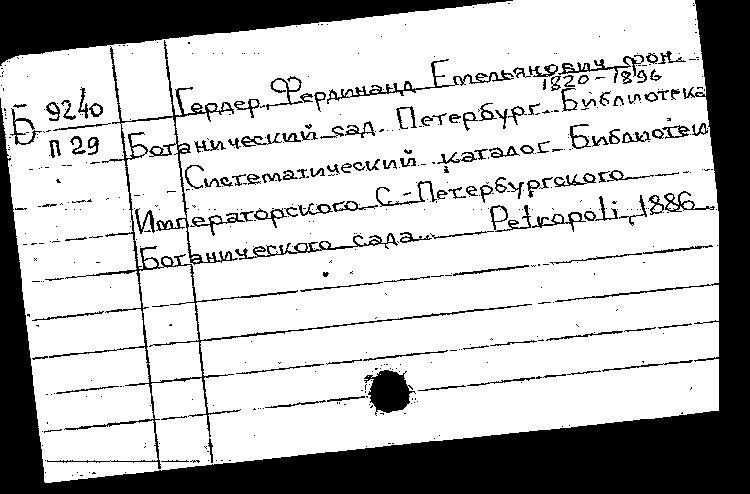 Б 9240
П 29
Гердер, Фердинанд Емельянович фон.
1820-1896
Ботанический сад. Петербург. Библиотека
Систематический каталог Библиотеки
Императорского С.-Петербургского
Ботанического сада... Petropoli, 1886.